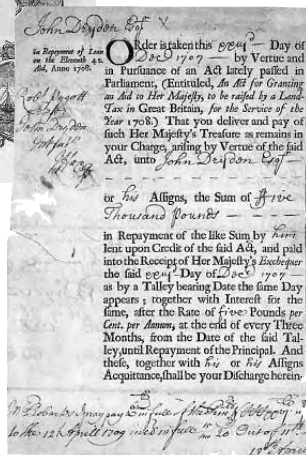 John Dryden Esqr
in Repayment of Loan
on the Eleventh 4s.
Aid, Anno 1708.
ORder is taken this xxiij° Day of
Decr 1707 — by Vertue and
in Pursuance of an Act lately passed in
Parliament, (Entituled, An Act for Granting
an Aid to Her Majesty, to be raised by a Land-
Tax in Great Britain, for the Service of the
Year 1708.) That you deliver and pay of
such Her Majesty's Treasure as remains in
your Charge, arising by Vertue of the said
Act, unto John Dryden Esqr
Robt Pigott
John Dryden
or his Assigns, the Sum of Five
Thousand Pounds
in Repayment of the like Sum by him
lent upon Credit of the said Act, and paid
into the Receipt of Her Majesty's Exchequer
the said Day of Decr 1707
as by a Talley bearing Date the same Day
appears; together with Interest for the
same, after the Rate of five Pounds per
Cent. per Annum, at the end of every Three
Months, from the Date of the said Tal-
ley, until Repayment of the Principal. And
these, together with his or his Assigns
Acquittance, shall be your Discharge herein.
pay in full of
to the 12th Aprill 1709 in full Out of